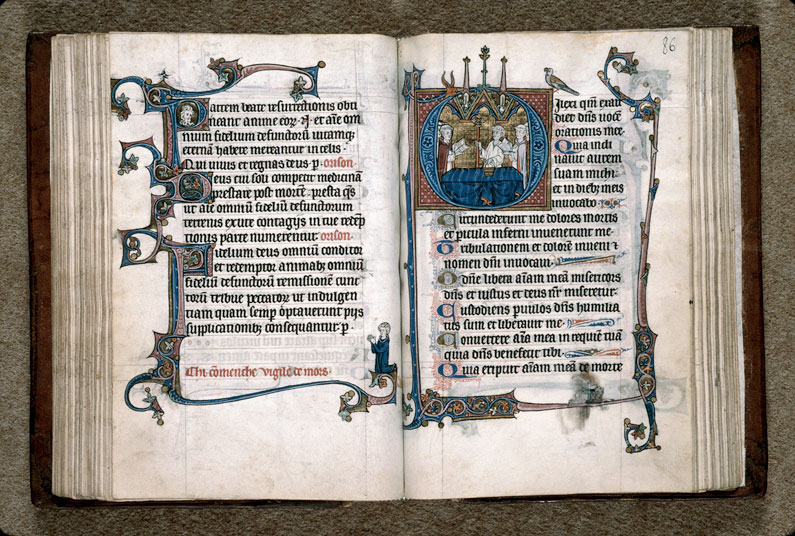 Partem beate resurrectionis obti
neant anime eorum et anime om
nium fidelium defunctorum vitamque
eternam habere mereantur in celis.
Qui vivis et regnas deus p. orison.
Deus cui soli competit medicinam
prestare post mortem. presta qs
ut anime omnium fidelium defunctorum
terrenis exute contagiis in tue redemp
tionis parte numerentur. orison.
Fidelium deus omnium conditor
et redemptor animabus omnium
fidelium defunctorum remissionem cunc
torum tribue peccatorum ut indulgen
tiam quam semper optaverunt piis
supplicationibus consequantur p.
Chi comenche vigile de mors.
86
Dilexi qm exau
diet dns vocem
orationis mee.
Quia incli
navit aurem
suam michi
et in diebus meis
invocabo.
Circundederunt me dolores mortis
et pericula inferni invenerunt me.
Tribulationem et dolorem inveni et
nomen dni invocavi.
O dne libera aiam meam misericors
dns et iustus et deus nr miseretur.
Custodiens parvulos dns humilia
tus sum et liberavit me.
Convertere aia mea in requiem tuam
quia dns benefecit tibi.
Quia eripuit aiam meam de morte